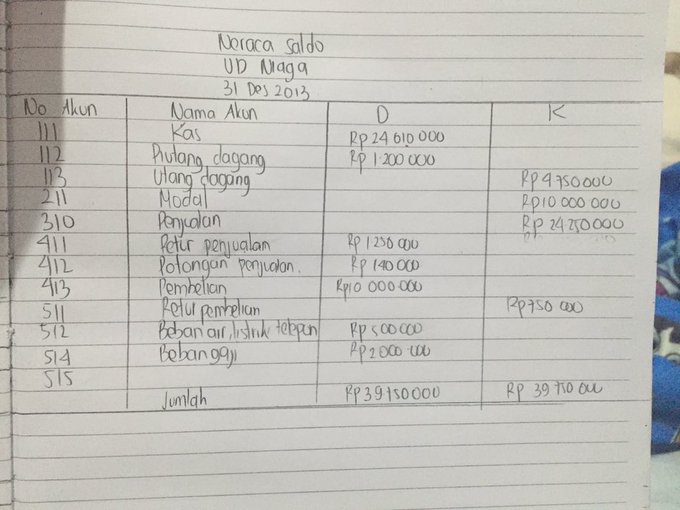 Neraca Saldo
UD Niaga
31 Des 2013
No Akun Nama Akun D K
111 Kas Rp 24 610 000
112 Piutang dagang Rp 1 200 000
113 Utang dagang Rp 4 750 000
211 Modal Rp 10 000 000
310 Penjualan Rp 24 250 000
411 Retur penjualan Rp 1 250 000
412 Potongan penjualan. Rp 140 000
413 Pembelian Rp 10 000 000
511 Retur pembelian Rp 750 000
512 Beban air, listrik telepun Rp 500 000
514 Beban gaji Rp 2 000 000
515
Jumlah Rp 39 750 000 Rp 39 750 000